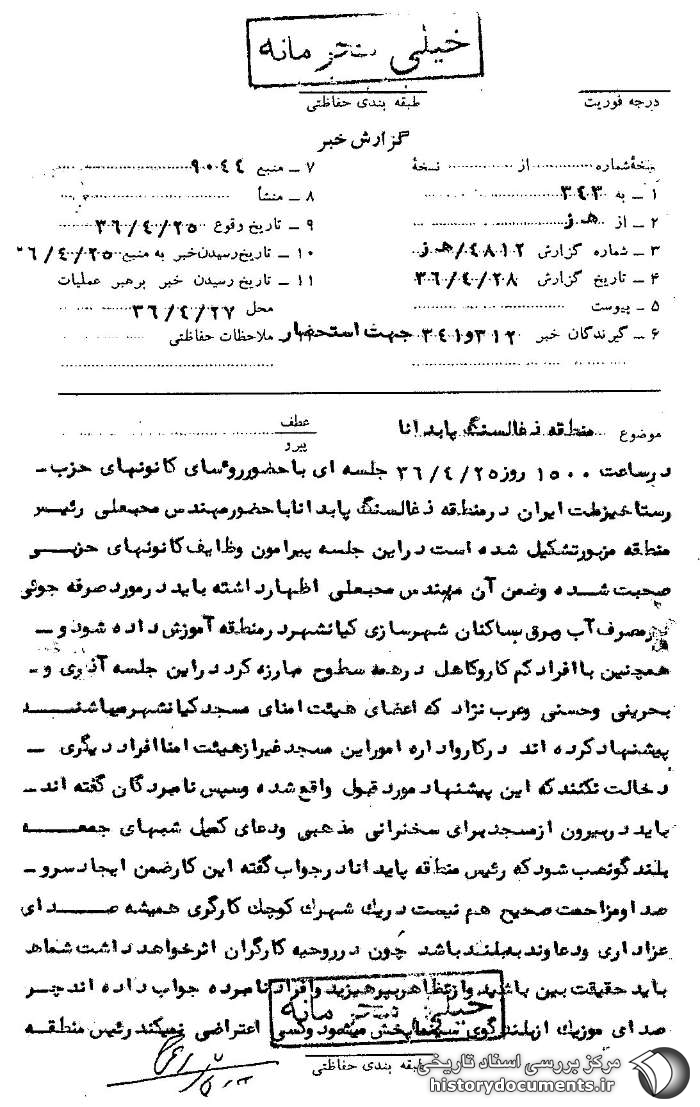 خیلی محرمانه
درجه فوریت
طبقه بندی حفاظتی
گزارش خبر
نسخهٔ شماره ............ از ............ نسخهٔ
۱ ـ به ۳۴۳
۲ ـ از ه‍ ز
۳ ـ شماره گزارش ۴۸۱۲/ه‍ ز
۴ ـ تاریخ گزارش ۳۶/۴/۲۸
۵ ـ پیوست
۶ ـ گیرندگان خبر ۳۱۲ و ۳۴۱ جهت استحضار
۷ ـ منبع ۹۰۴۴
۸ ـ منشأ
۹ ـ تاریخ وقوع ۳۶/۴/۲۵
۱۰ ـ تاریخ رسیدن خبر به منبع ۳۶/۴/۲۵
۱۱ ـ تاریخ رسیدن خبر برهبر عملیات
محل ۳۶/۴/۲۷
ملاحظات حفاظتی
موضوع منطقه ذغالسنگ پابدانا
عطف
پیرو
درساعت ۱۵۰۰ روز ۳۶/۴/۲۵ جلسه ای باحضور روسای کانونهای حزب ـ
رستاخیز ملت ایران درمنطقه ذغالسنگ پابدانا باحضور مهندس محبعلی رئیس
منطقه مزبور تشکیل شده است دراین جلسه پیرامون وظایف کانونهای حزبی
صحبت شده وضمن آن مهندس محبعلی اظهار داشته باید درمورد صرفه جوئی
درمصرف آب وبرق بساکنان شهرسازی کیانشهر درمنطقه آموزش داده شود و ـ
همچنین باافراد کم کار وکاهل درهمه سطوح مبارزه کرد دراین جلسه آذری و ـ
بحرینی وحسنی وعرب نژاد که اعضای هیئت امنای مسجد کیانشهر میباشند
پیشنهاد کرده اند درکار واداره امور این مسجد غیراز هیئت امنا افراد دیگری ـ
دخالت نکنند که این پیشنهاد مورد قبول واقع شده وسپس نامبردگان گفته اند ـ
باید دربیرون ازمسجد برای سخنرانی مذهبی ودعای کمیل شبهای جمعه
بلندگو نصب شود که رئیس منطقه پابدانا درجواب گفته این کار ضمن ایجاد سرو ـ
صدا ومزاحمت صحیح هم نیست دریک شهرک کوچک کارگری همیشه صدای
عزاداری ودعا وند به بلند باشد چون درروحیه کارگران اثر خواهد داشت شماهد
باید حقیقت بین باشید وازتظاهر بپرهیزید وافراد نامبرده جواب داده اند چر
صدای موزیک ازبلندگوی سینما پخش میشود وکسی اعتراضی نمیکند رئیس منطقه
خیلی محرمانه
طبقه بندی حفاظتی
مرکز بررسی اسناد تاریخی
historydocuments.ir